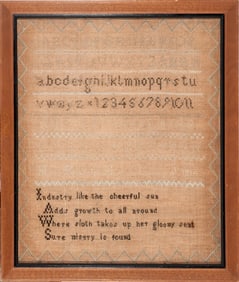 abcdefghiklmnopqrstu
vwxyz 1234567891011
Industry like the cheerful sun
Adds growth to all around
Where sloth takes up her gloomy seat
Sure misery is found